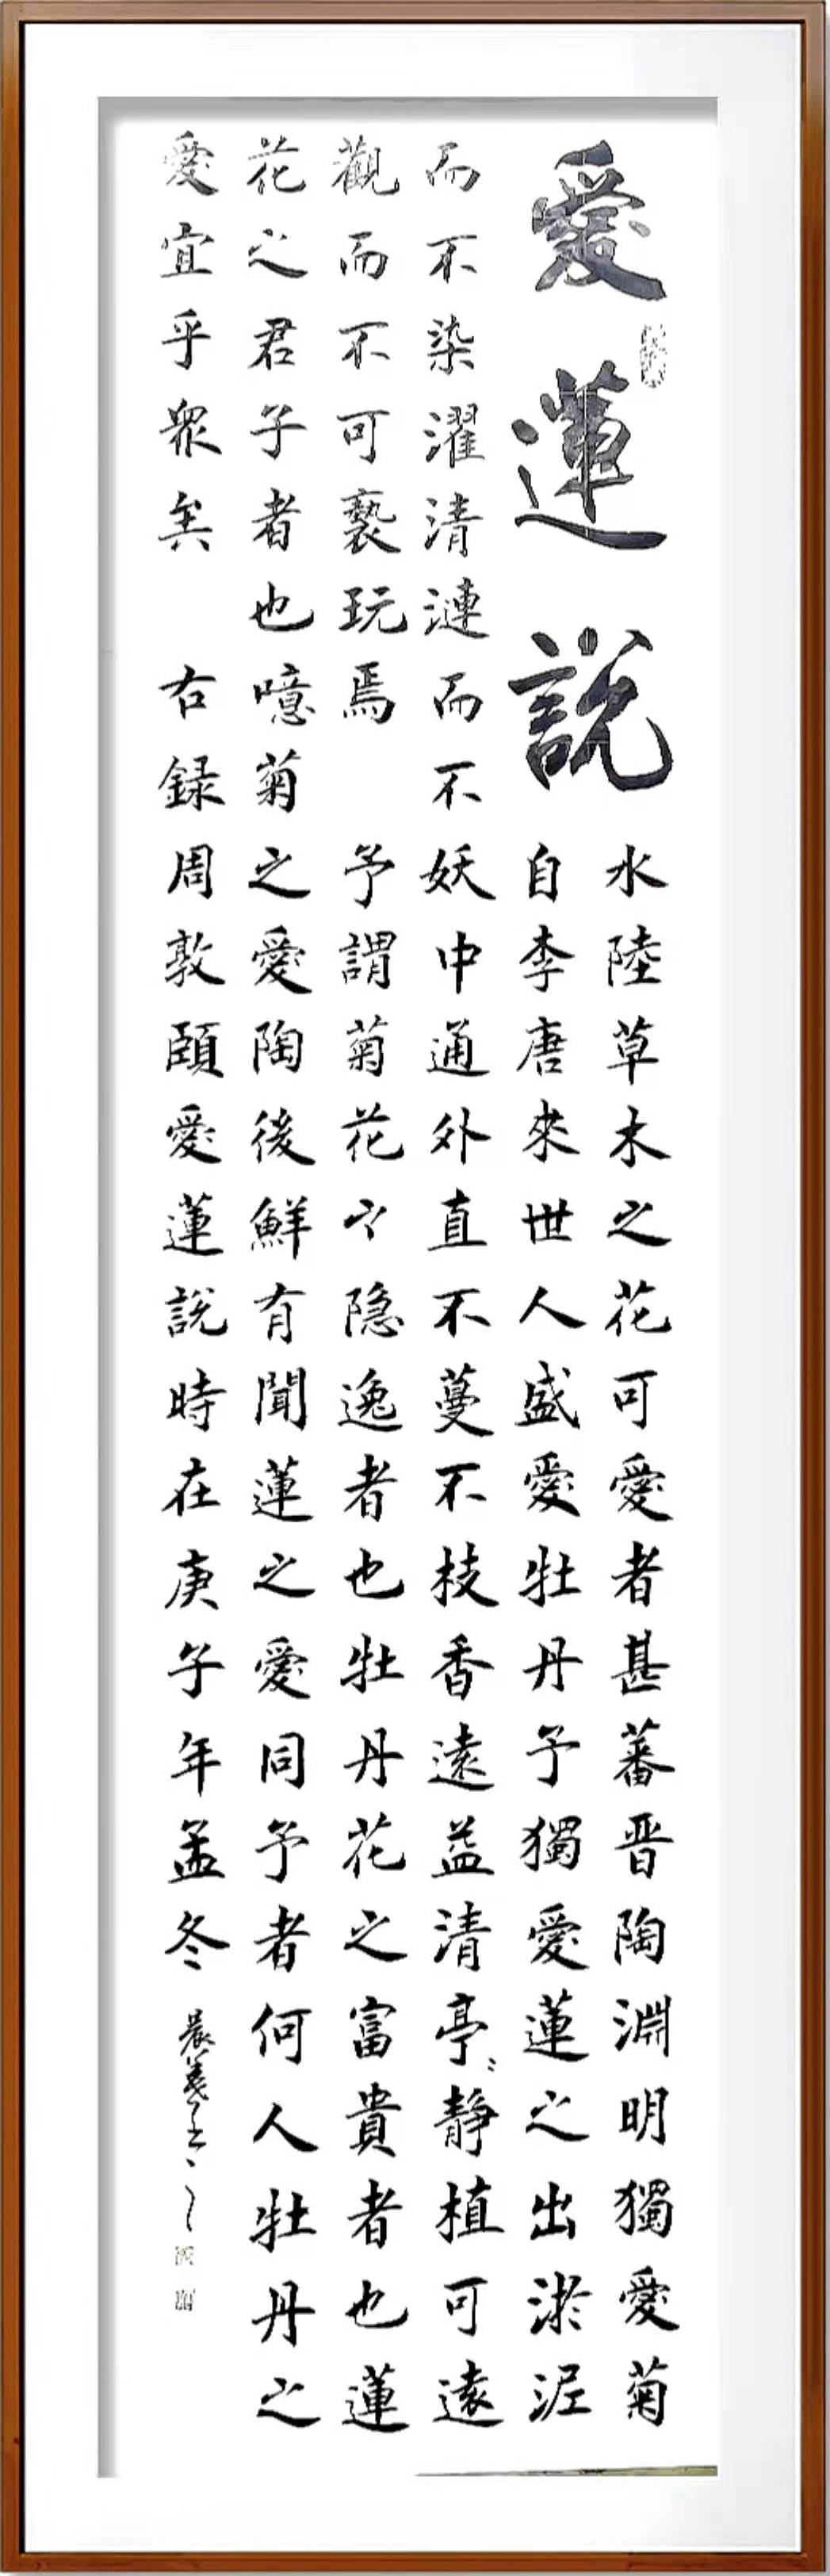 愛蓮說
水陸草木之花可愛者甚蕃晋陶淵明獨愛菊
自李唐來世人盛愛牡丹予獨愛蓮之出淤泥
而不染濯清漣而不妖中通外直不蔓不枝香遠益清亭〻靜植可遠
觀而不可褻玩焉 予謂菊花之隐逸者也牡丹花之富貴者也蓮
花之君子者也噫菊之愛陶後鮮有聞蓮之愛同予者何人牡丹之
愛宜乎眾矣 右録周敦頤愛蓮說時在庚子年孟冬